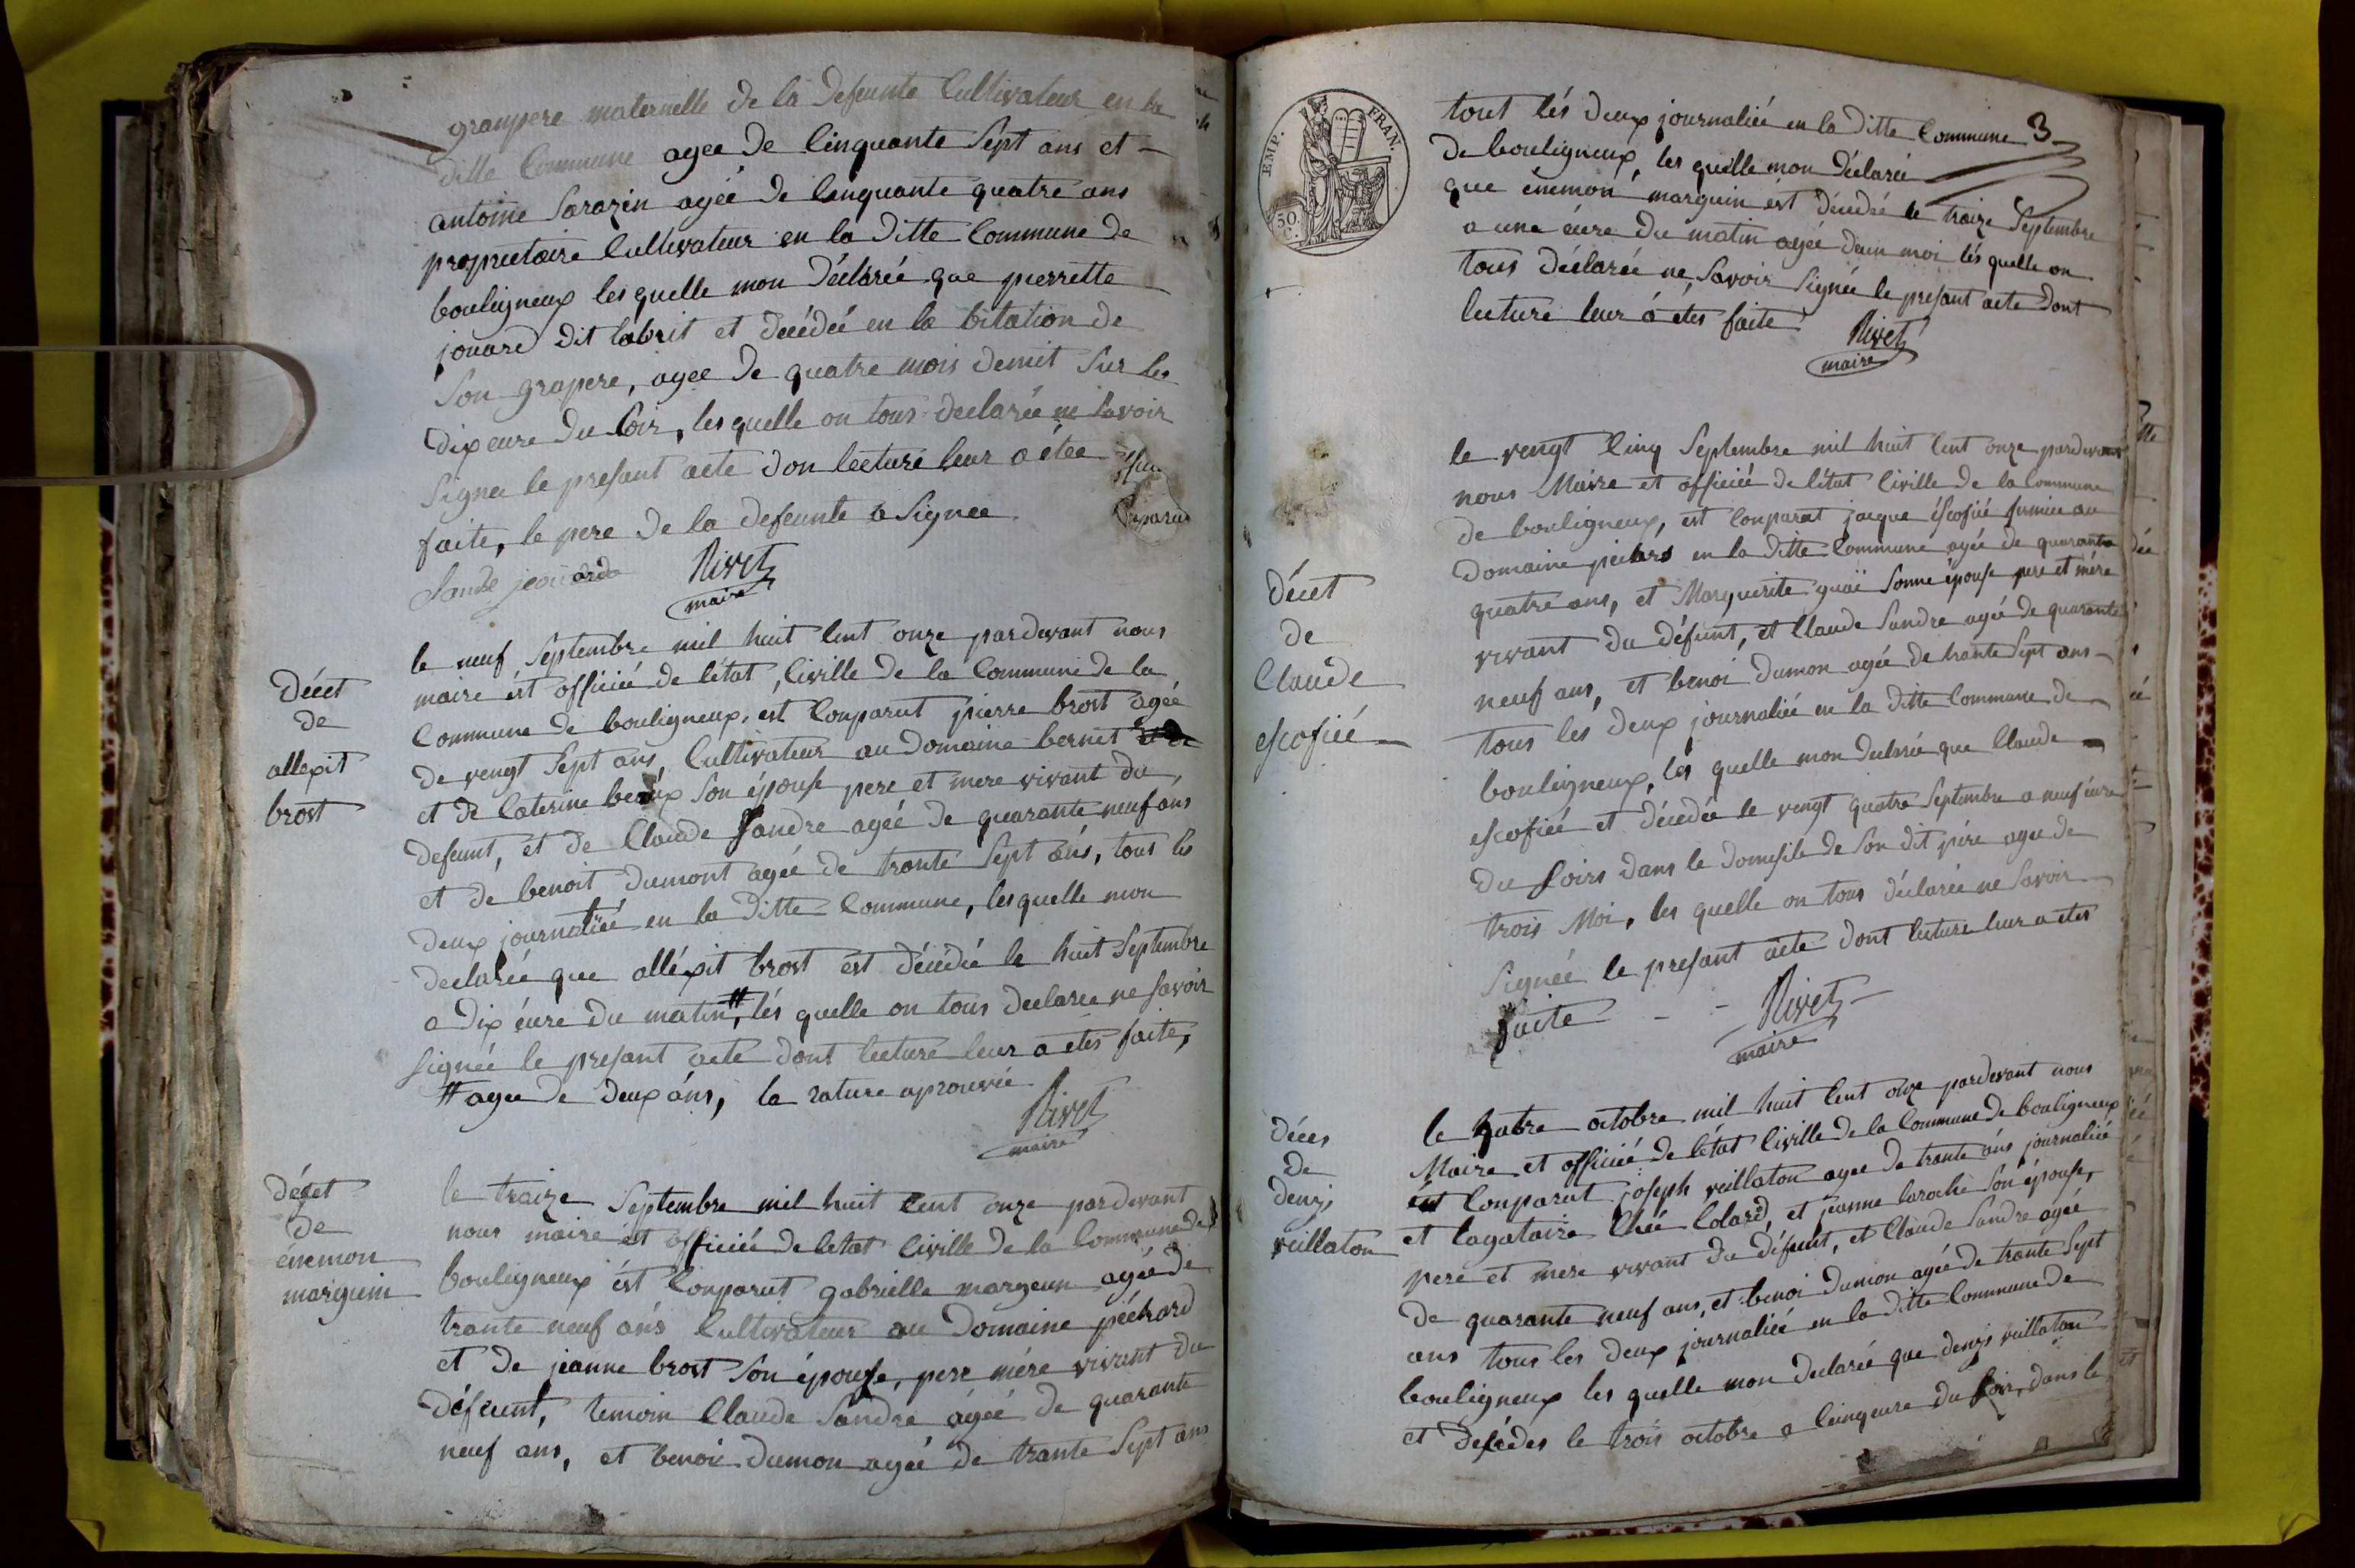 granpere maternelle de la defeunte Cultivateur en la
ditte Commune agee de Cinquante Sept ans et
antoine Sarazin agéé de Cinquante quatre ans
proprietaire Cultivateur en la ditte Commune de
bouligneux lesquelle mon déclarée que pierrette
jouard dit labrit et decédéé en la bitation de
Son grapere, agee de quatre mois demit Sur les
dix eure du Soir, lesquelle on tous declarée ne Savoir
Signer le presant acte don lecture leur a étée
faite, le pere de la defeunte a Signee
Rivet
maire
décet
de
allexit
brost
le neuf Septembre mil huit Cent onze pardevant nous
maire ét officiéé de létat, Civille de la Commune de la
Commune de bouligneux, est Conparut pierre brost agéé
de vengt Sept ans, Cultivateur au domaine bernet
et de Caterine beaux Son épouse pere et mere vivant du
defeunt, et de Claude Sandre agéé de quarante neuf ans
et de benoit dumont agéé de trante Sept ans, tous les
deux journaliéé en la ditte Commune, lesquelle mon
declarée que alléxit brost ést décédéé le huit Septembre
a dix éure du matin #, lés quelle on tous declaree ne savoir
signéé le presant acte dont lecture leur a etés faite,
# agee de deux áns, la rature aprouvéé
Rivet
maire
décet
de
énemon
marguin
le traize Septembre mil huit Cent onze pardevant
nous maire ét officiéé de letat Civille de la Commune de
bouligneux ést Conparut gabrielle margeun agéé de
trante neuf áns Cultivateur au domaine pééhard
et de jeanne brost Son épouse, pere mére vivant du
déféunt, temoin Claude Sandre agéé de quarante
neuf ans, et benoi dumon agéé de trante Sept ans
EMP. FRAN.
50 C.
3
tout lés deux journaliéé en la ditte Commune
de bouligneux, les quelle mon déclaréé
que énemon marguin ést décédéé le traize Septembre
a une éure du matin agéé deun moi lés quelle on
tous déclaréé ne Savoir Signée le presant acte dont
lecture leur á etes faite
Rivet
maire
décet
de
Claude
escofiéé
le vengt Cinq Septembre mil huit Cent onze pardevant
nous Maire et officiéé de létat Civille de la Commune
de bouligneux, est Conparut jacque éscofiéé fermiee au
domaine en la ditte Commune agéé de quarante
quatre ans, et Marguerite guai Sonne épouse pere et mére
vivant du défeunt, et Claude Sandre agéé de quarante
neuf ans, et benoi dumon agéé de trante Sept ans
tous les deux journaliéé en la ditte Commune de
bouligneux, les quelle mon declaréé que Claude
escofiéé et décédée le vengt quatre Septembre a neuf éure
du Soirs dans le domesile de Son dit pére agee de
trois Moi, les quelle on tous déclarée ne Savoir
Signéé le presant acte dont lecture leur a etes
faite
Rivet
maire
déces
de
denis
veillaton
le quatre octobre mil huit Cent onze pardevant nous
Maire et officiéé de létat Civille de la Commune de bouligneux
est Conparut joseph veillaton agee de trante áns journaliéé
et lagataire Chéé Colard, et jeanne laroche Son épouse,
pere et mere vivant du défeunt, et Claude Sandre agéé
de quarante neuf ans, et benoi dumon agéé de trante Sept
ans tous les deux journaliéé en la ditte Commune de
bouligneux les quelle mon declarée que denis veillaton
et deséder le trois octobre a Cinqeure du Soir, dans le